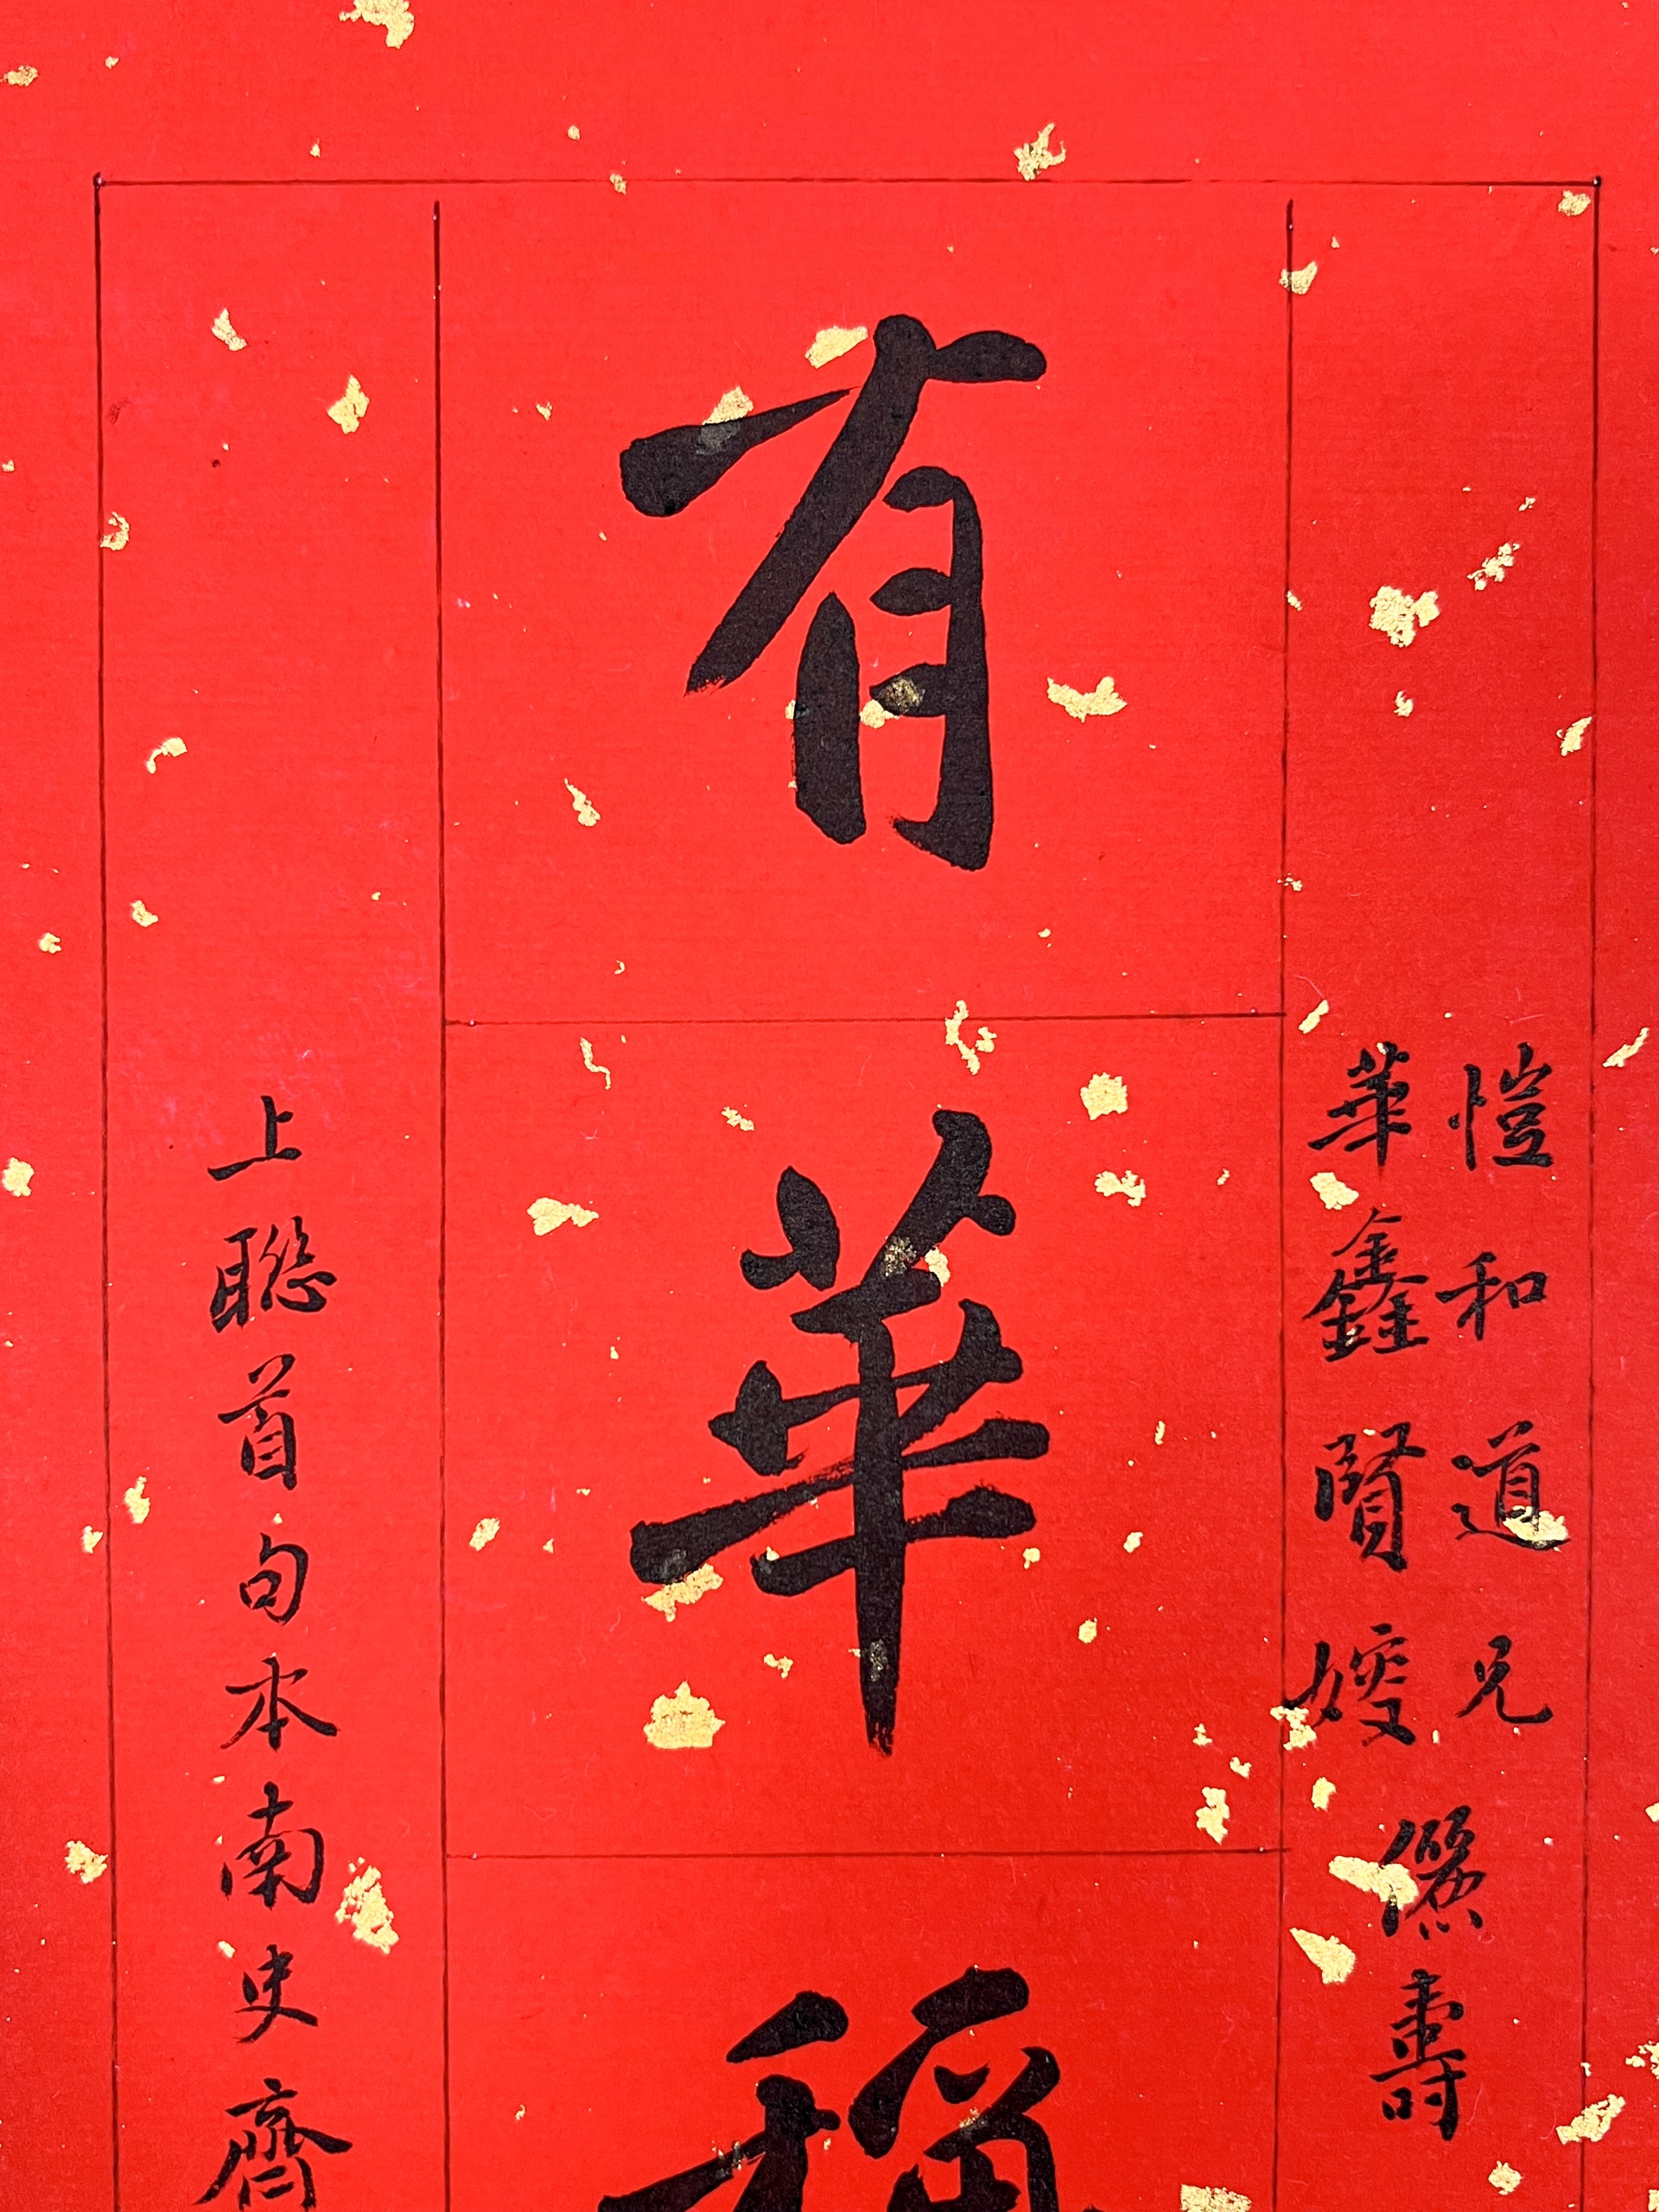 愷和道兄
華鑫賢嫂
儷壽
有華稱
上聯首句本南史齊